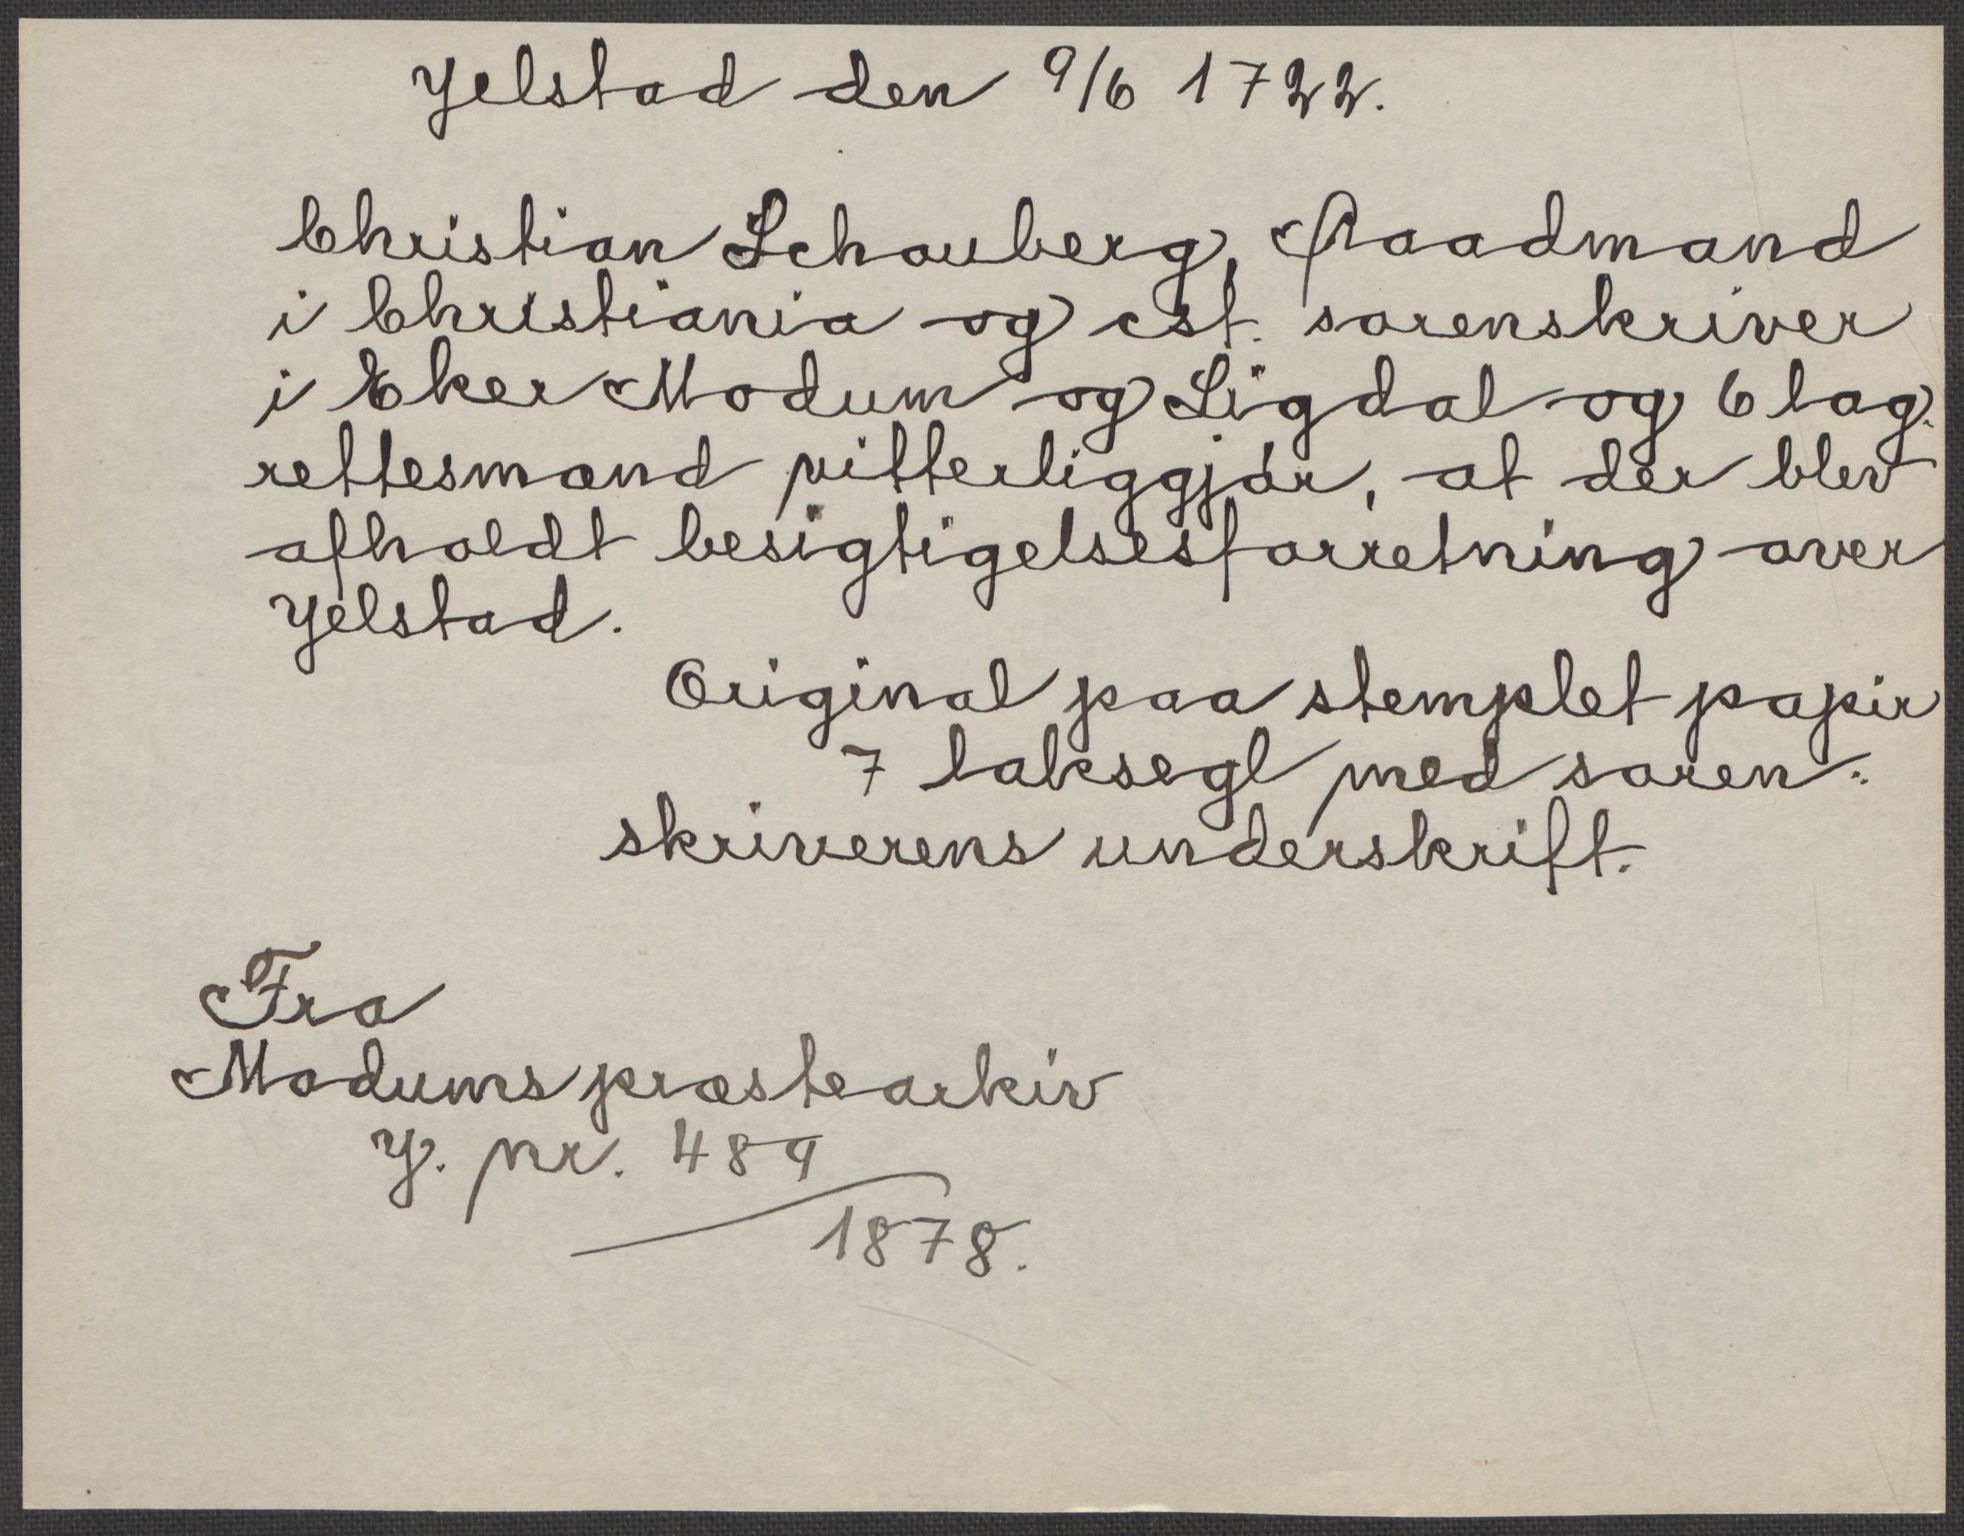 Yelstad den 9/6 1722.
Christian Schouberg, Raadmand
i Christiania og cst. sorenskriver
i Eker Modum og Sigdal og 6 lag
rettesmænd vitterliggjör, at der blev
afholdt besigtigelsesforretning over
Yelstad.
Original paa stemplet papir
7 laksegl med soren-
skriverens underskrift.
Fra
Modums præstearkiv
J. nr. 489
1878.